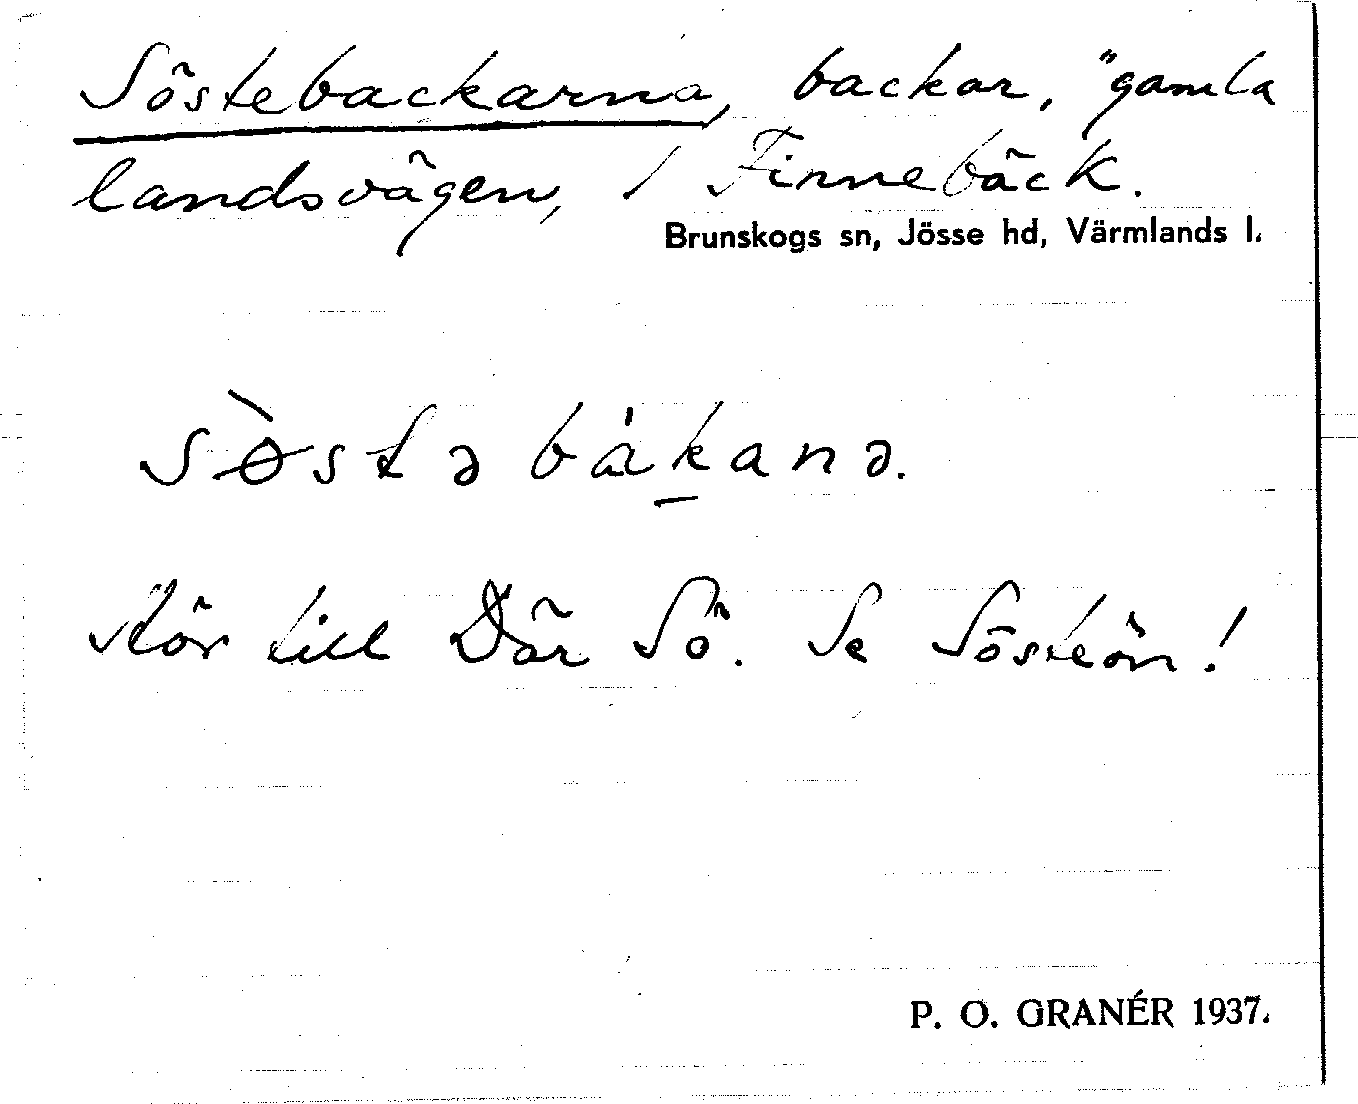 Söstebackarna, backar, "gamla
landsvägen, / Finnebäck.
Brunskogs sn, Jösse hd, Värmlands l.
sø̀stə bákanə.
Hör till Där Sö. Se Sösteön!
P. O. GRANÉR 1937.